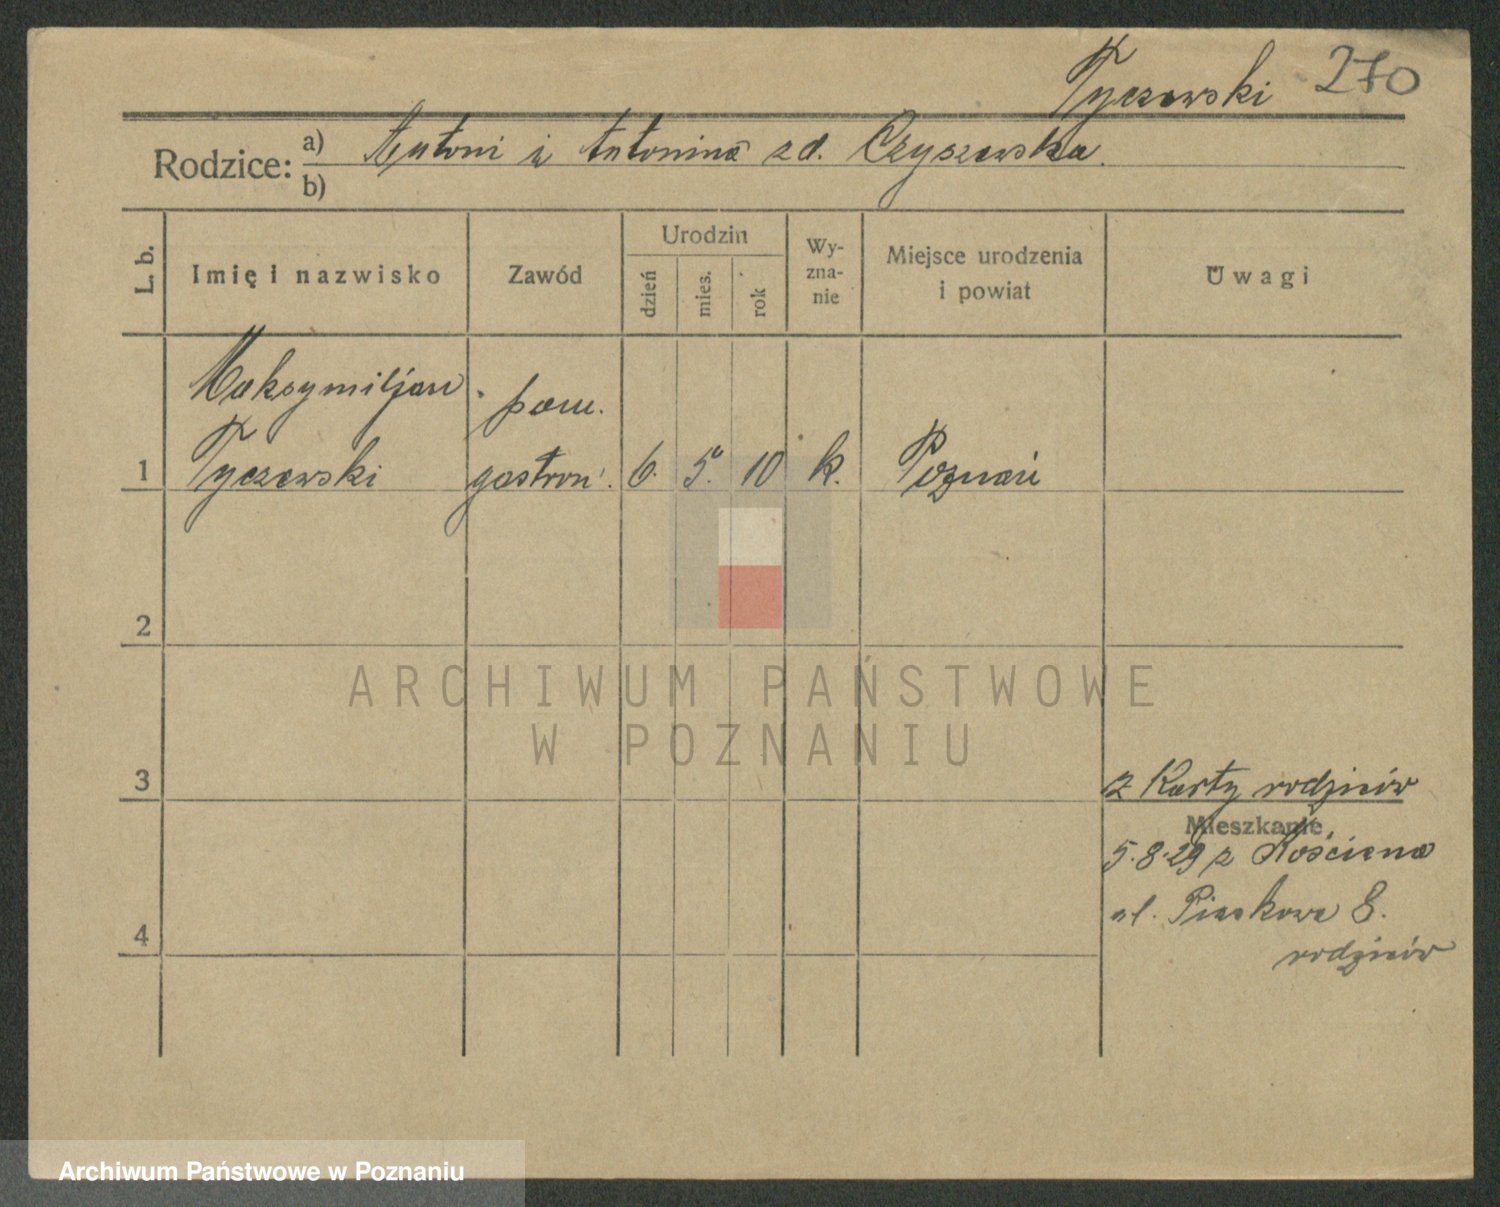 Tyczewski 270
Rodzice: a) Antoni i Antonina zd. Czyszewska.
b)
L. b. Imię i nazwisko Zawód Urodzin dzień mies. rok Wyznanie Miejsce urodzenia i powiat Uwagi
Maksymiljan pom.
1 Tyczewski gastron. 6. 5. 10 k. Poznań
2
ARCHIWUM PAŃSTWOWE
W POZNANIU
3 z Karty rodziców
Mieszkanie
5.8.29 z Kościana
ul. Piaskowa 8.
4 rodziców
Archiwum Państwowe w Poznaniu